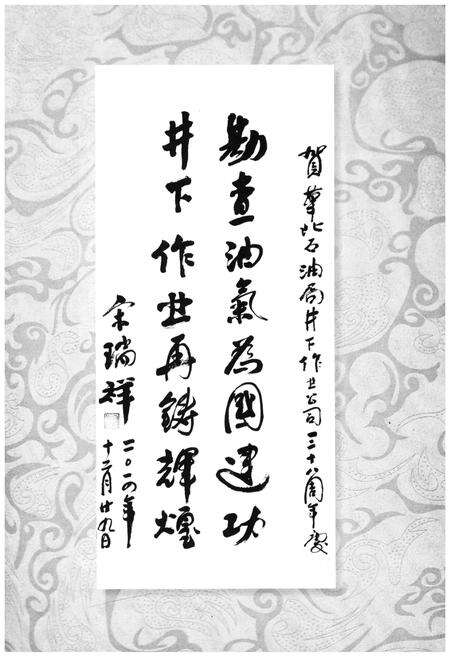 贺华北石油局井下作业公司三十八周年庆
勘查油氣為國建功
井下作业再鑄輝煌
宋瑞祥
二〇一四年
十二月廿九日